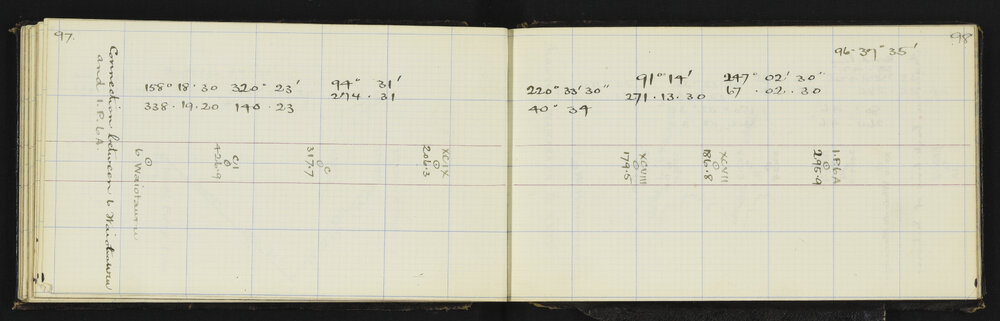 97.
Connection between 6 Waiotauru
and I.P. 6A.
158° 18. 30 320° 23' 94° 31'
338. 19. 20 140. 23 274. 31
6 Waiotauru
CII
426.9
C
317.7
XCIX
206.3
98
96. 37" 35'
220° 33' 30" 91° 14' 247° 02' 30"
40° 34 271. 13. 30 67. 02. 30
XCVIII
179.5
XCVII
186.8
I.P. 6A
295.9